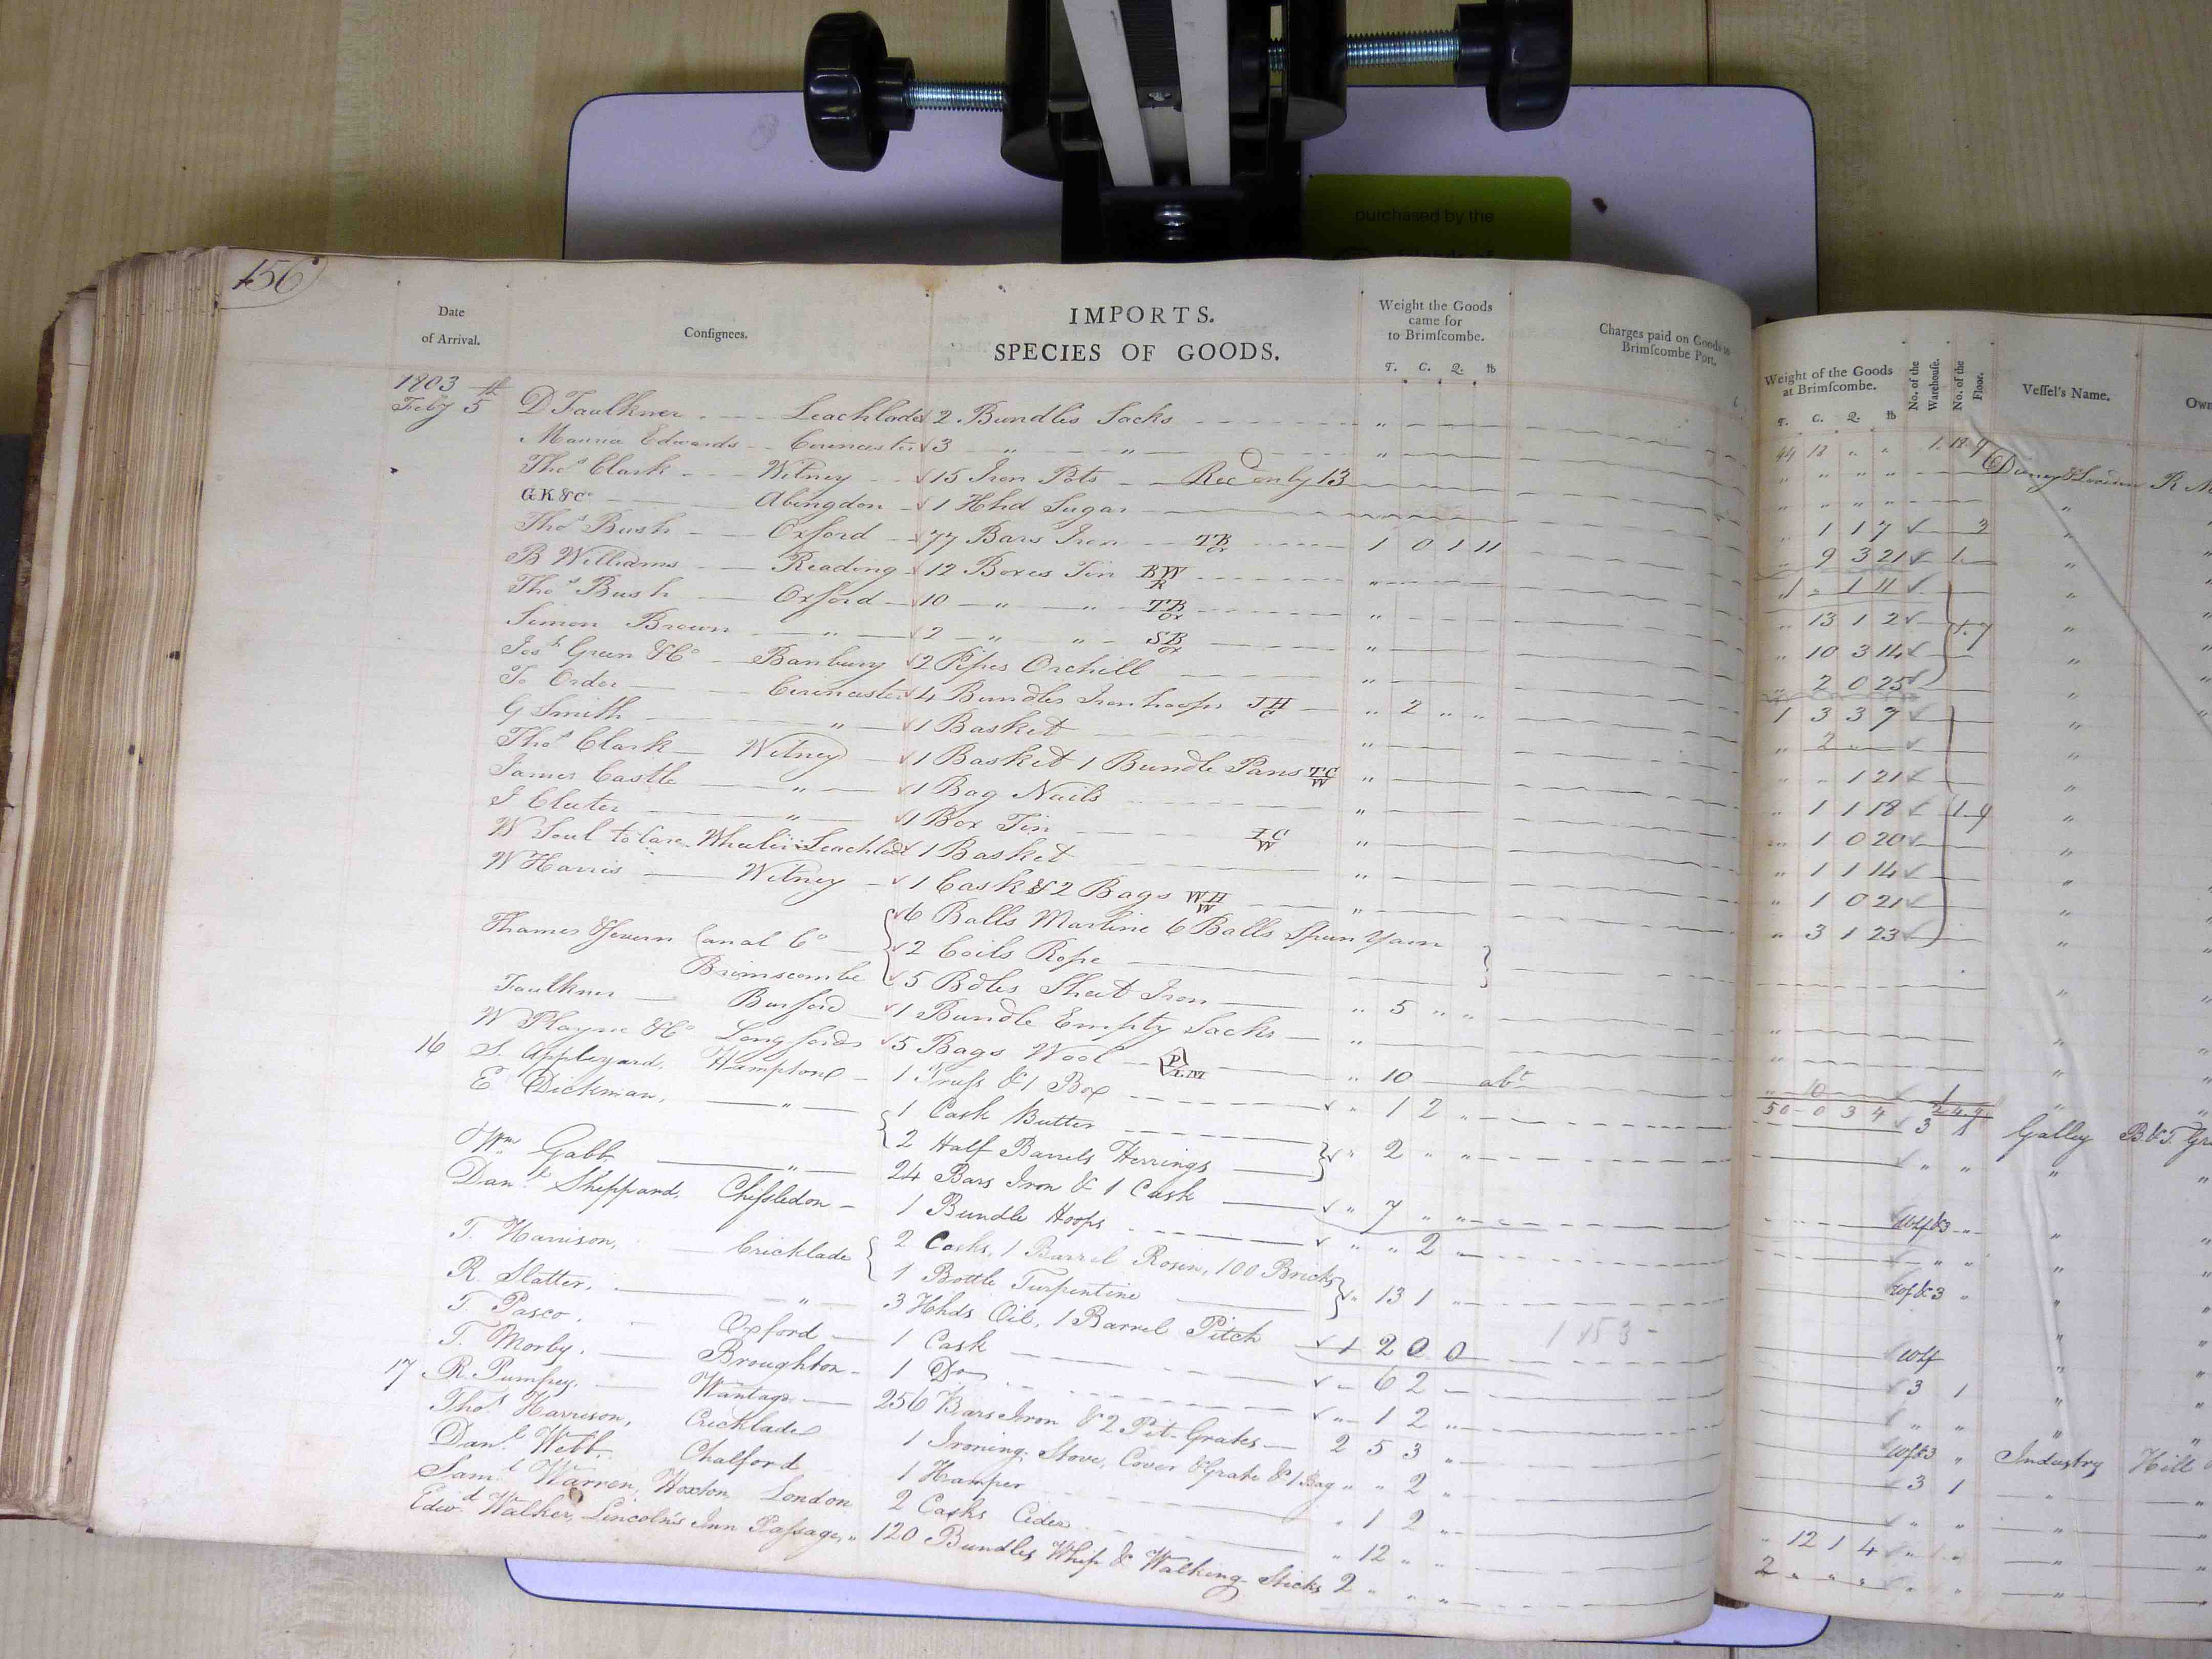 purchased by the
156
Date
of Arrival.
Consignees.
IMPORTS.
SPECIES OF GOODS.
Weight the Goods
came for
to Brimſcombe.
T. C. Q. lb
Charges paid on Goods to
Brimſcombe Port.
Weight of the Goods
at Brimſcombe.
T. C. Q. lb
No. of the
Warehouse.
No. of the
Floor.
Veſſel's Name.
1803
Feby 5th D Faulkner Leachlade 2 Bundles Sacks
Edwards Cirencester 3 " "
Thos Clark Witney 15 Iron Pots Rec only 13
GK&Co Abingdon 1 Hhd Sugar
Thos Bush Oxford 77 Bars Iron TB Ox 1 0 1 11
B Williams Reading 12 Boxes Tin BW R "
Thos Bush Oxford 10 " " TB Ox "
Simon Brown " 2 " " SB Ox "
Josh Green &Co Banbury 2 Pipes Orchill "
To Order Cirencester 4 Bundles Ironhoops JH C " 2 " "
G Smith " 1 Basket "
Thos Clark Witney 1 Basket 1 Bundle Pans TC W "
James Castle " 1 Bag Nails "
J Cluter " 1 Box Tin IC W "
W Soul to Care Wheeler Leachlade 1 Basket "
W Harris Witney 1 Cask & 2 Bags WH W "
Thames & Severn Canal Co 6 Balls Marline 6 Balls Spun Yarn
2 Coils Rope
Brimscombe 5 Bdles Sheet Iron " 5 " "
Faulkner Burford 1 Bundle Empty Sacks "
W Playne &Co Longfords 5 Bags Wool P " 10 abt
16 S. Appleyard, Hampton 1 Truſs & 1 Box " 1 2 "
E Dickman, " 1 Cask Butter
2 Half Barrels Herrings " 2 " "
Wm Gabb " 24 Bars Iron & 1 Cask " 7 " "
Danl Sheppard, Chiſsledon 1 Bundle Hoops " " 2 "
T. Harrison, Cricklade 2 Casks, 1 Barrel Rosin, 100 Bricks
1 Bottle Turpentine " 13 1 "
R. Slatter, " 3 Hhds Oil, 1 Barrel Pitch 1 2 0 0
T. Pasco, Oxford 1 Cask " 6 2 "
T. Morby. Broughton 1 Do " 1 2 "
17 R. Pumfrey. Wantage 256 Bars Iron & 2 Pit Grates 2 5 3 "
Thos Harrison, Cricklade 1 Ironing Stove, Cover & Grate & 1 Bag " " 2 "
Danl Webb Chalford 1 Hamper " 1 2 "
Saml Warren, Hoxton London 2 Casks Cider " 12 " "
Edwd Walker, Lincoln's Inn Paſsage, " 120 Bundles Whip & Walking Sticks 2 " " "
" 1 1 7 3
" 9 3 21 1
1 " 1 11
" 13 1 2
" 10 3 14
" 2 0 25
1 3 3 7
" 2
" " 1 21
" 1 1 18 1.9
" 1 0 20
" 1 1 14
" 1 0 21
" 3 1 23
" 10 1
50 0 3 4 3 Galley B.&T.
Wf&3
Wf&3
Wf
3 1
Wf&3 " Industry Hill
3 1
" 12 1 4
2 " " "